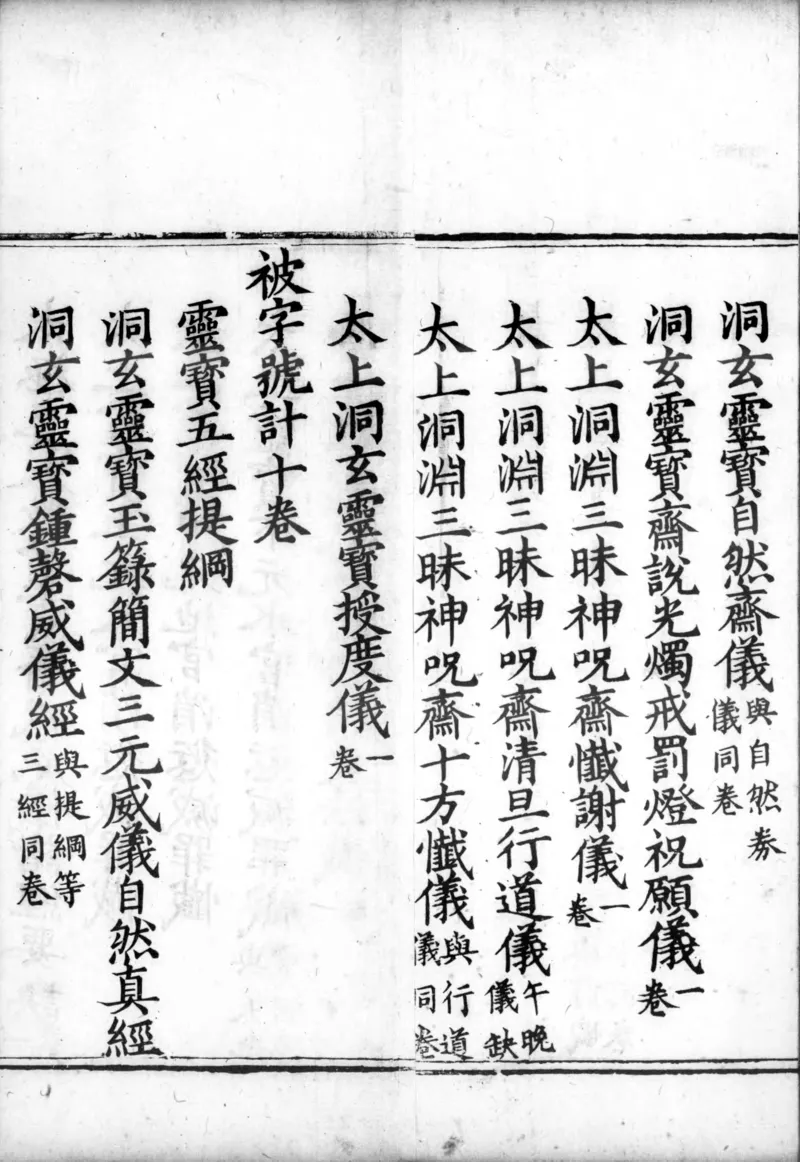 洞玄靈寳自然齋儀與自然券儀同卷
洞玄靈寳齋說光燭戒罰燈祝願儀一卷
太上洞淵三昧神呪齋懺謝儀一卷
太上洞淵三昧神呪齋清旦行道儀午晚儀缺
太上洞淵三昧神呪齋十方懺儀與行道儀同卷
太上洞玄靈寳授度儀一卷
被字號計十卷
靈寳五經提綱
洞玄靈寳玉籙簡文三元威儀自然真經
洞玄靈寳鍾磬威儀經與提綱等三經同卷